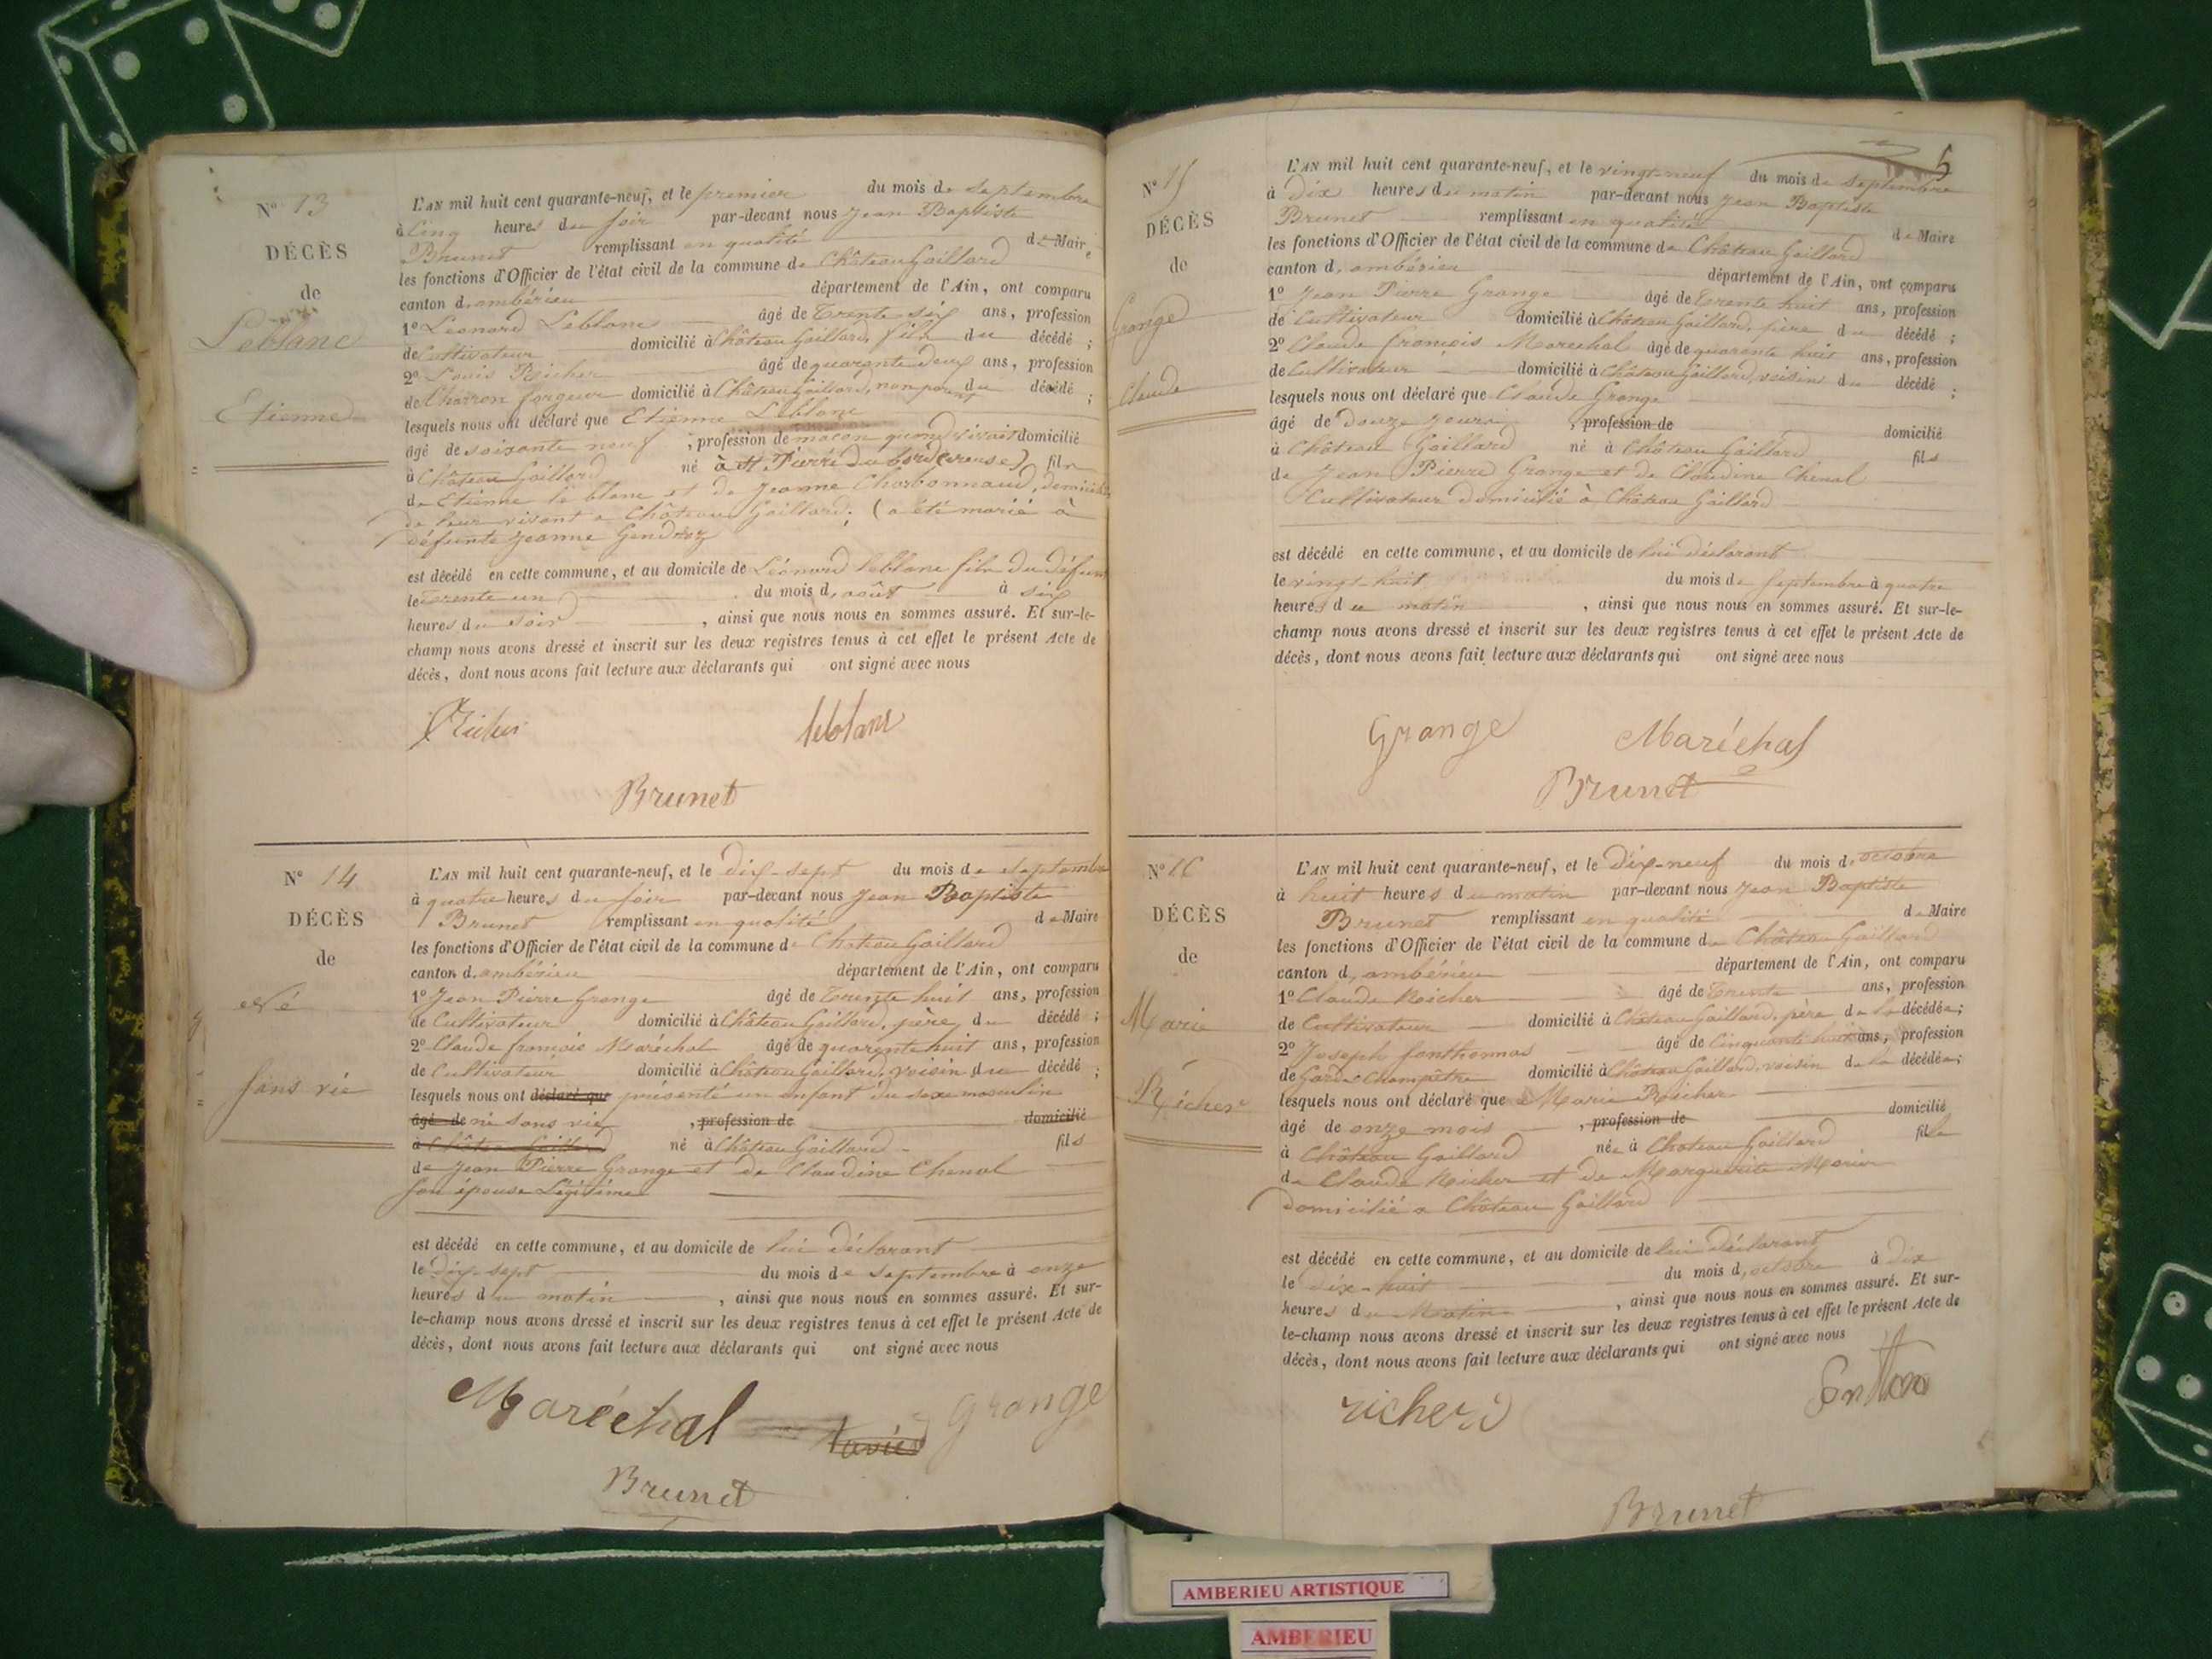 N° 13
DÉCÈS
de
Leblanc
Etienne
L'AN mil huit cent quarante-neuf, et le premier du mois de septembre
à cinq heures du soir par-devant nous Jean Baptiste
Brunet remplissant en qualité de Maire
les fonctions d'Officier de l'état civil de la commune de Château Gaillard
canton d'ambérieu département de l'Ain, ont comparu
1° Léonard Leblanc âgé de trente six ans, profession
de Cultivateur domicilié à Château Gaillard, fils du décédé ;
2° Louis Richer âgé de quarente deux ans, profession
de Charron forgeur domicilié à Château Gaillard, non parent du décédé ;
lesquels nous ont déclaré que Etienne Leblanc
âgé de soixante neuf ; profession de maçon quand vivait domicilié
à Château Gaillard né à St Pierre du bord (creuse) fils
de Etienne le blanc et de Jeanne Charbonnaud, domiciliés
de leur vivant a Château Gaillard; (a été marié à
défunte Jeanne
est décédé en cette commune, et au domicile de Léonard leblanc fils du défunt
le trente un du mois d'août à six
heures du soir , ainsi que nous nous en sommes assuré. Et sur-le-
champ nous avons dressé et inscrit sur les deux registres tenus à cet effet le présent Acte de
décès, dont nous avons fait lecture aux déclarants qui ont signé avec nous
Richer leblanc
Brunet
N° 14
DÉCÈS
de
Né
sans vie
L'AN mil huit cent quarante-neuf, et le dix-sept du mois de septembre
à quatre heures du soir par-devant nous Jean Baptiste
Brunet remplissant en qualité de Maire
les fonctions d'Officier de l'état civil de la commune de Château Gaillard
canton d'ambérieu département de l'Ain, ont comparu
1° Jean Pierre Grange âgé de trente huit ans, profession
de Cultivateur domicilié à Château Gaillard, père du décédé ;
2° Claude françois Maréchal âgé de quarente huit ans, profession
de Cultivateur domicilié à Château Gaillard, voisin du décédé ;
lesquels nous ont déclaré que présenté un enfant du sexe masculin
âgé de né sans vie , profession de domicilié
à Château Gaillard né à Château Gaillard fils
de Jean Pierre Grange et de Claudine Chenal
son épouse Légitime
est décédé en cette commune, et au domicile de lui déclarant
le dix-sept du mois de septembre à onze
heures du matin , ainsi que nous nous en sommes assuré. Et sur-
le-champ nous avons dressé et inscrit sur les deux registres tenus à cet effet le présent Acte de
décès, dont nous avons fait lecture aux déclarants qui ont signé avec nous
Maréchal Grange
Brunet
5
N° 15
DÉCÈS
de
Grange
Claude
L'AN mil huit cent quarante-neuf, et le vingt-neuf du mois de septembre
à dix heures du matin par-devant nous Jean Baptiste
Brunet remplissant en qualité de Maire
les fonctions d'Officier de l'état civil de la commune de Château Gaillard
canton d'ambérieu département de l'Ain, ont comparu
1° Jean Pierre Grange âgé de trente huit ans, profession
de Cultivateur domicilié à Château Gaillard, père du décédé ;
2° Claude françois Marechal âgé de quarente huit ans, profession
de Cultivateur domicilié à Château Gaillard, voisin du décédé ;
lesquels nous ont déclaré que Claude Grange
âgé de douze jours , profession de domicilié
à Château Gaillard né à Château Gaillard fils
de Jean Pierre Grange et de Claudine Chenal
Cultivateur domicilié à Château Gaillard
est décédé en cette commune, et au domicile de lui déclarant
le vingt-huit du mois de septembre à quatre
heures du matin , ainsi que nous nous en sommes assuré. Et sur-le-
champ nous avons dressé et inscrit sur les deux registres tenus à cet effet le présent Acte de
décès, dont nous avons fait lecture aux déclarants qui ont signé avec nous
Grange Maréchal
Brunet
N° 16
DÉCÈS
de
Marie
Richer
L'AN mil huit cent quarante-neuf, et le dix-neuf du mois d'octobre
à huit heures du matin par-devant nous Jean Baptiste
Brunet remplissant en qualité de Maire
les fonctions d'Officier de l'état civil de la commune de Château Gaillard
canton d'ambérieu département de l'Ain, ont comparu
1° Claude Richer âgé de trente ans, profession
de Cultivateur domicilié à Château Gaillard, père de la décédée ;
2° Joseph fonthomas âgé de Cinquante huit ans, profession
de Garde Champêtre domicilié à Château Gaillard, voisin de la décédée ;
lesquels nous ont déclaré que Marie Richer
âgé de onze mois , profession de domicilié
à Château Gaillard née à Château Gaillard fille
de Claude Richer et de Marguerite
domicilié a Château Gaillard
est décédé en cette commune, et au domicile de lui déclarant
le dix-huit du mois d'octobre à dix
heures du Matin , ainsi que nous nous en sommes assuré. Et sur-
le-champ nous avons dressé et inscrit sur les deux registres tenus à cet effet le présent Acte de
décès, dont nous avons fait lecture aux déclarants qui ont signé avec nous
richer
Brunet
AMBERIEU ARTISTIQUE
AMBERIEU